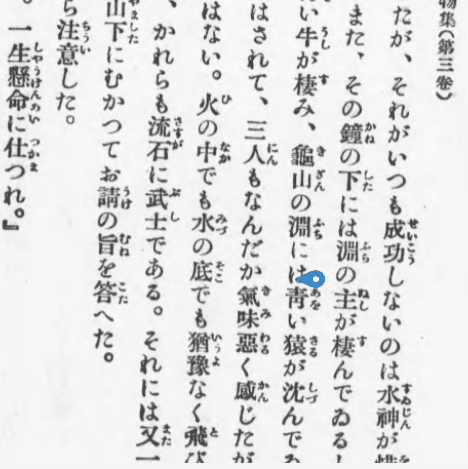 物集(第三卷)
たが、それがいつも成功しないのは水神が惜
また、その鐘の下には淵の主が棲んでゐるし
い牛が棲み、龜山の淵には靑い猿が沈んでゐ
はされて、三人もなんだか氣味惡く感じたが
はない。火の中でも水の底でも猶豫なく飛び
、かれらも流石に武士である。それには又一
山下にむかつてお請の旨を答へた。
ら注意した。
。一生懸命に仕つれ。』